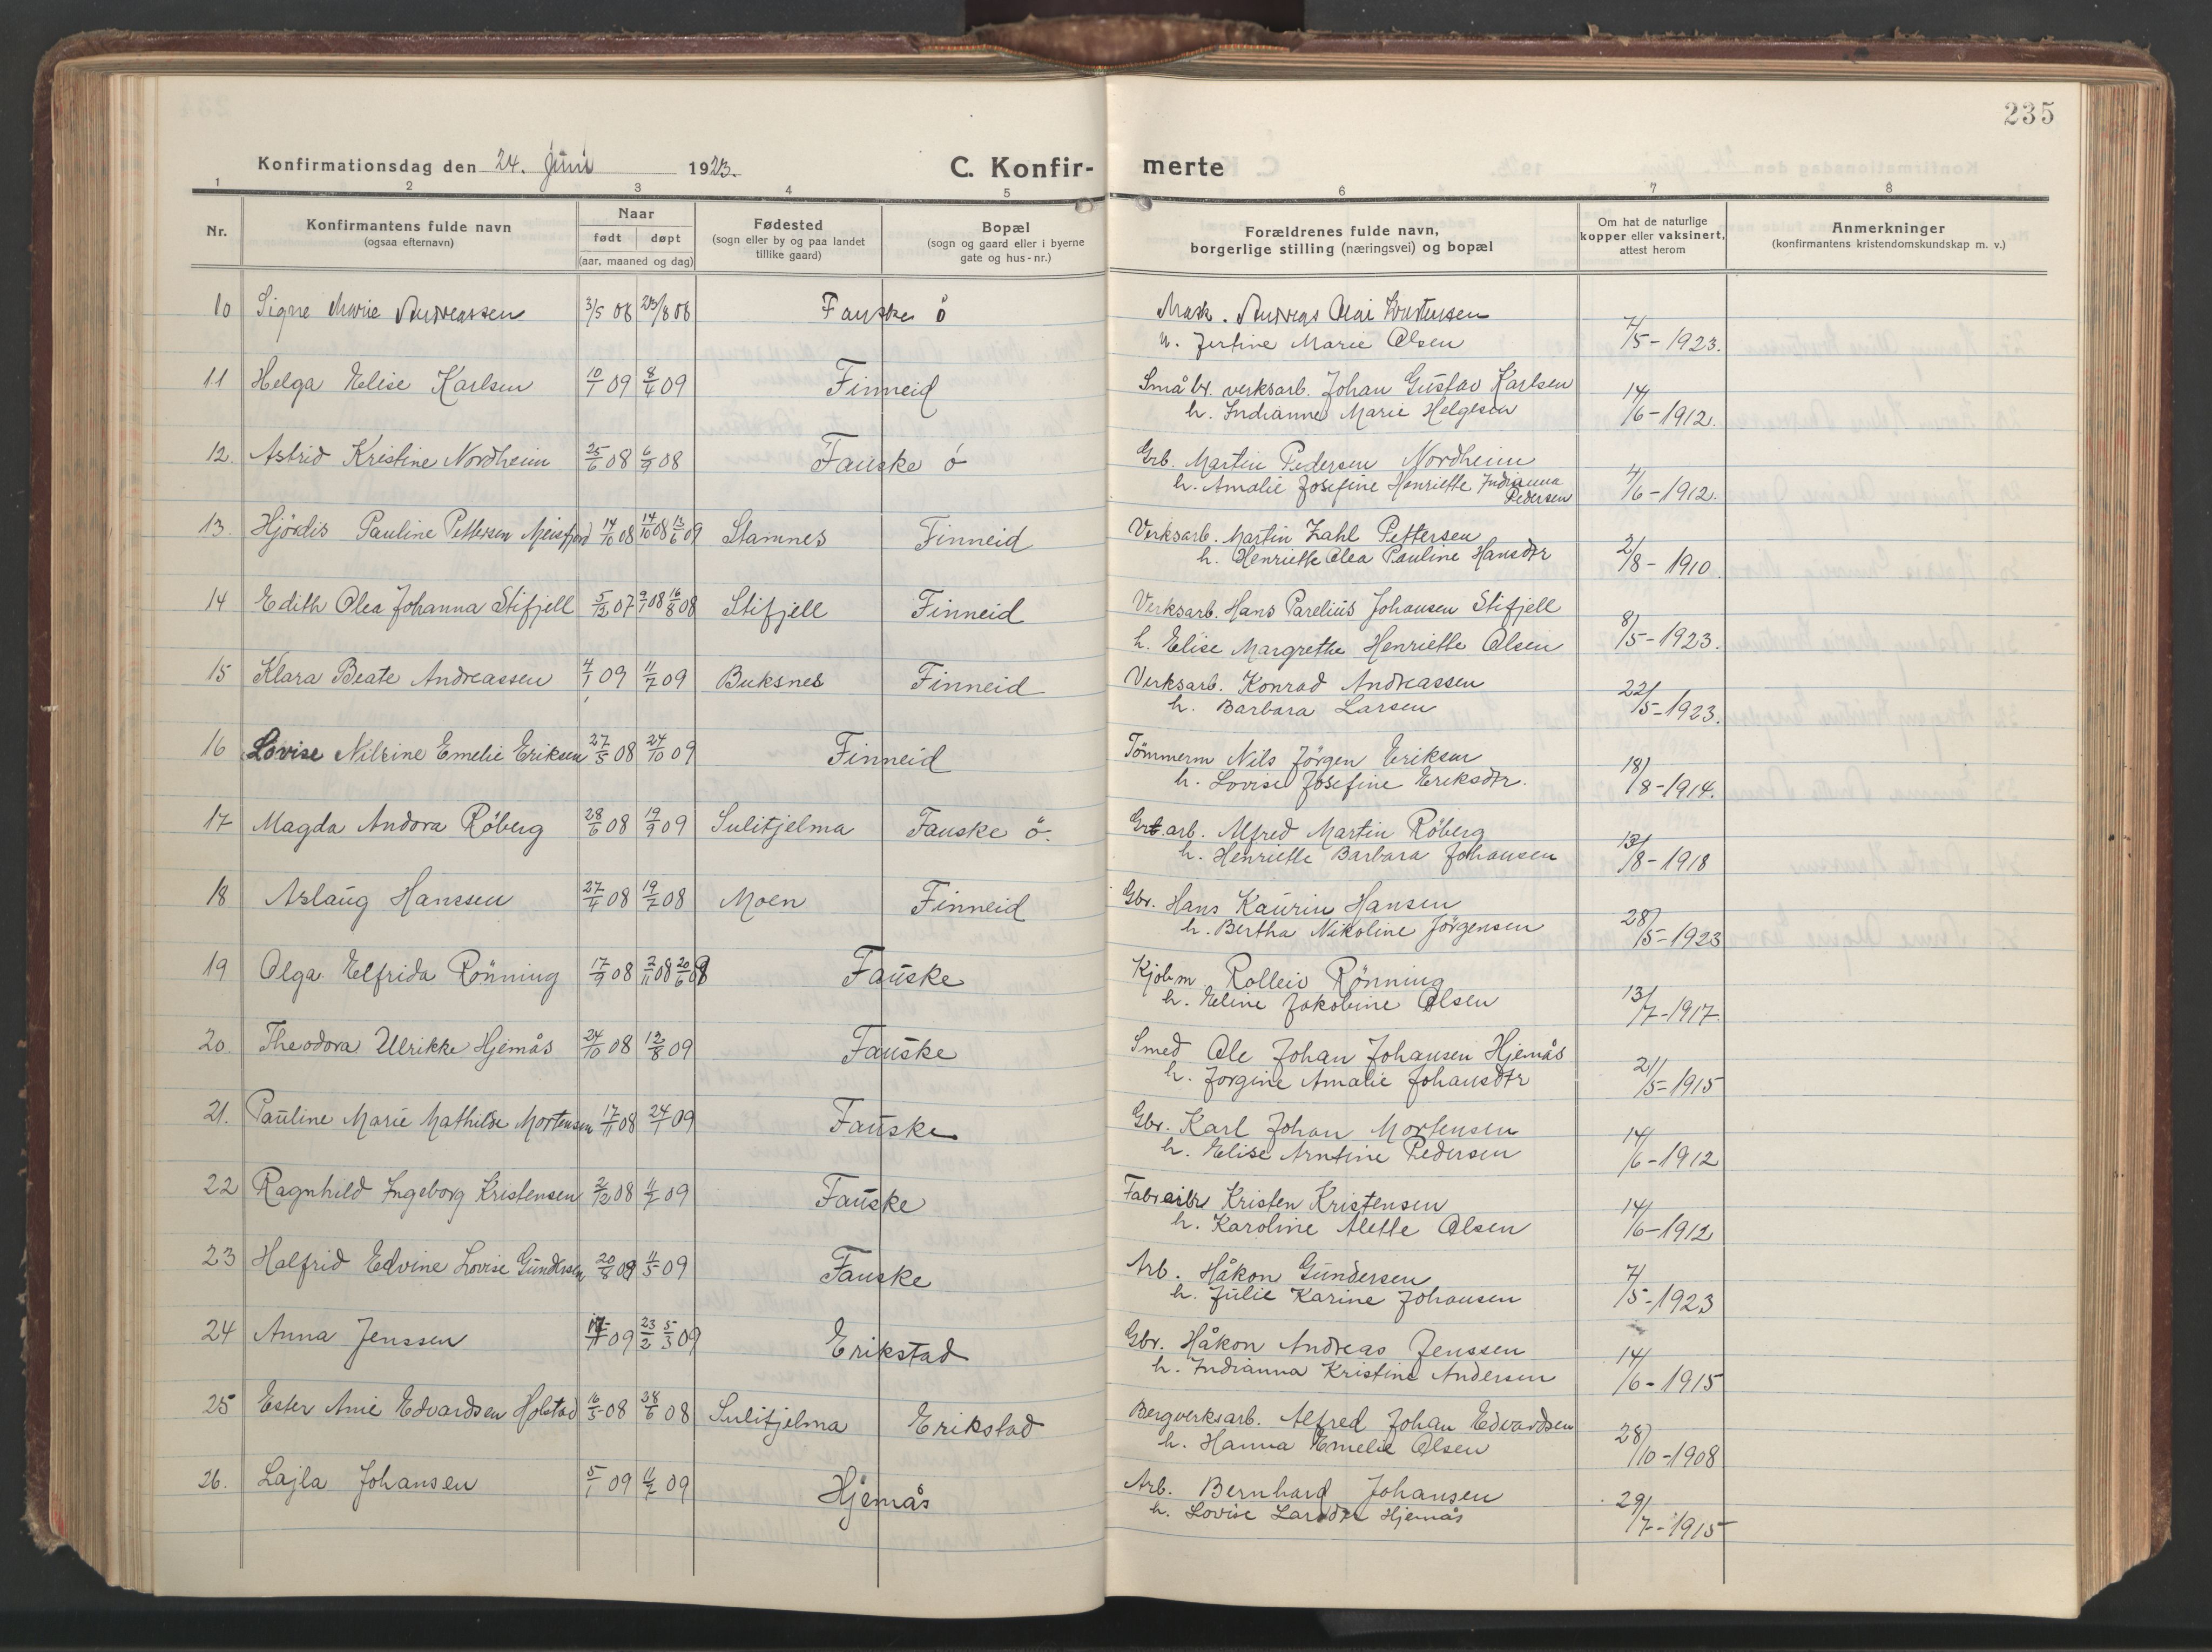 235
Konfirmationsdag den 24. Juni 1923.
C. Konfir-
merte
1 2 3 4 5 6 7 8
Nr.
Konfirmantens fulde navn
(ogsaa efternavn)
Naar
født døpt
(aar, maaned og dag)
Fødested
(sogn eller by og paa landet
tillike gaard)
Bopæl
(sogn og gaard eller i byerne
gate og hus-nr.)
Forældrenes fulde navn,
borgerlige stilling (næringsvei) og bopæl
Om hat de naturlige
kopper eller vaksinert,
attest herom
Anmerkninger
(konfirmantens kristendomskundskap m. v.)
10 Signe Marie Andreassen 3/5 08 23/8 08 Fauske ö
Mask. Andreas Olai
Marie Olsen 7/5-1923.
11 Helga Elise Karlsen 10/1 09 8/4 09 Finneid
Småbr. verksarb. Johan Gustav Karlsen
h. Indianne Marie Helgesen 14/6-1912.
12. Astrid Kristine Nordheim 25/6 08 6/9 08 Fauske ö
Grb. Martin Pedersen Nordheim
h. Amalie Josefine Henriette Indianna
Pedersen 4/6-1912.
13. Hjördis Pauline Pettersen Meisfjord 14/10 08 14/10 08 13/6 09 Stamnes Finneid
Verksarb. Martin Zahl Pettersen
h. Henriette Olea Pauline Hansdtr 2/8-1910.
14 Edith Olea Johanna Stifjell 5/12 07 9/1 08 16/8 08 Stifjell Finneid
Verksarb. Hans Parelius Johansen Stifjell
h. Elise Margrethe Henriette Olsen 8/5-1923.
15 Klara Beate Andreassen 4/1 09 11/7 09 Buksnes Finneid
Verksarb. Konrad Andreassen
h. Barbara Larsen 22/5-1923.
16 Lovise Nilsine Emelie Eriksen 27/5 08 24/10 09 Finneid
Tömmerm Nils Jörgen Eriksen
h. Lovise Josefine Eriksdtr. 18/8-1914.
17 Magda Andora Röberg 28/6 08 19/9 09 Sulitjelma Fauske ö.
Grt.arb. Alfred Martin Röberg
h. Henriette Barbara Johansen 13/8-1918
18 Aslaug Hanssen 27/4 08 19/7 08 Moen Finneid
Gbr. Hans Kaurin Hansen
h. Bertha Nikoline Jörgensen 28/5-1923
19 Olga Elfrida Rönning 17/9 08 2/11 08 20/6 09 Fauske
Kjöbm Rolleiv Rönning
h. Eline Jakobine Olsen 13/7-1917.
20. Theodora Ulrikke Hjemås 24/10 08 12/8 09 Fauske
Smed Ole Johan Johansen Hjemås
h. Jorgine Amalie Johansdtr 21/5-1915
21. Pauline Marie Mathilde Mortensen 17/11 08 24/1 09 Fauske
Gbr. Karl Johan Mortensen
h. Elise Arntine Pedersen 14/6-1912
22 Ragnhild Ingeborg Kristensen 2/12 08 11/7 09 Fauske
Kristen Kristensen
h. Karoline Alette Olsen 14/6-1912
23 Halfrid Edvine Lovise Gundersen 20/8 09 11/5 09 Fauske
Arb. Håkon Gundersen
h. Julie Karine Johansen 7/5-1923
24 Anna Jenssen 09 23/2 5/3 09 Erikstad
Gbr. Håkon Andreas Jenssen
h. Indianna Kristine Andersen 14/6-1915
25 Ester Anie Edvardsen Holstad 16/3 08 28/6 08 Sulitjelma Erikstad
Bergverksarb. Alfred Johan Edvardsen
h. Hanna Emelie Olsen 28/10-1908
26. Lajla Johansen 5/1 09 11/7 09 Hjemås
Arb. Bernhard Johansen
h. Lovise Larsdtr Hjemås 29/7-1915